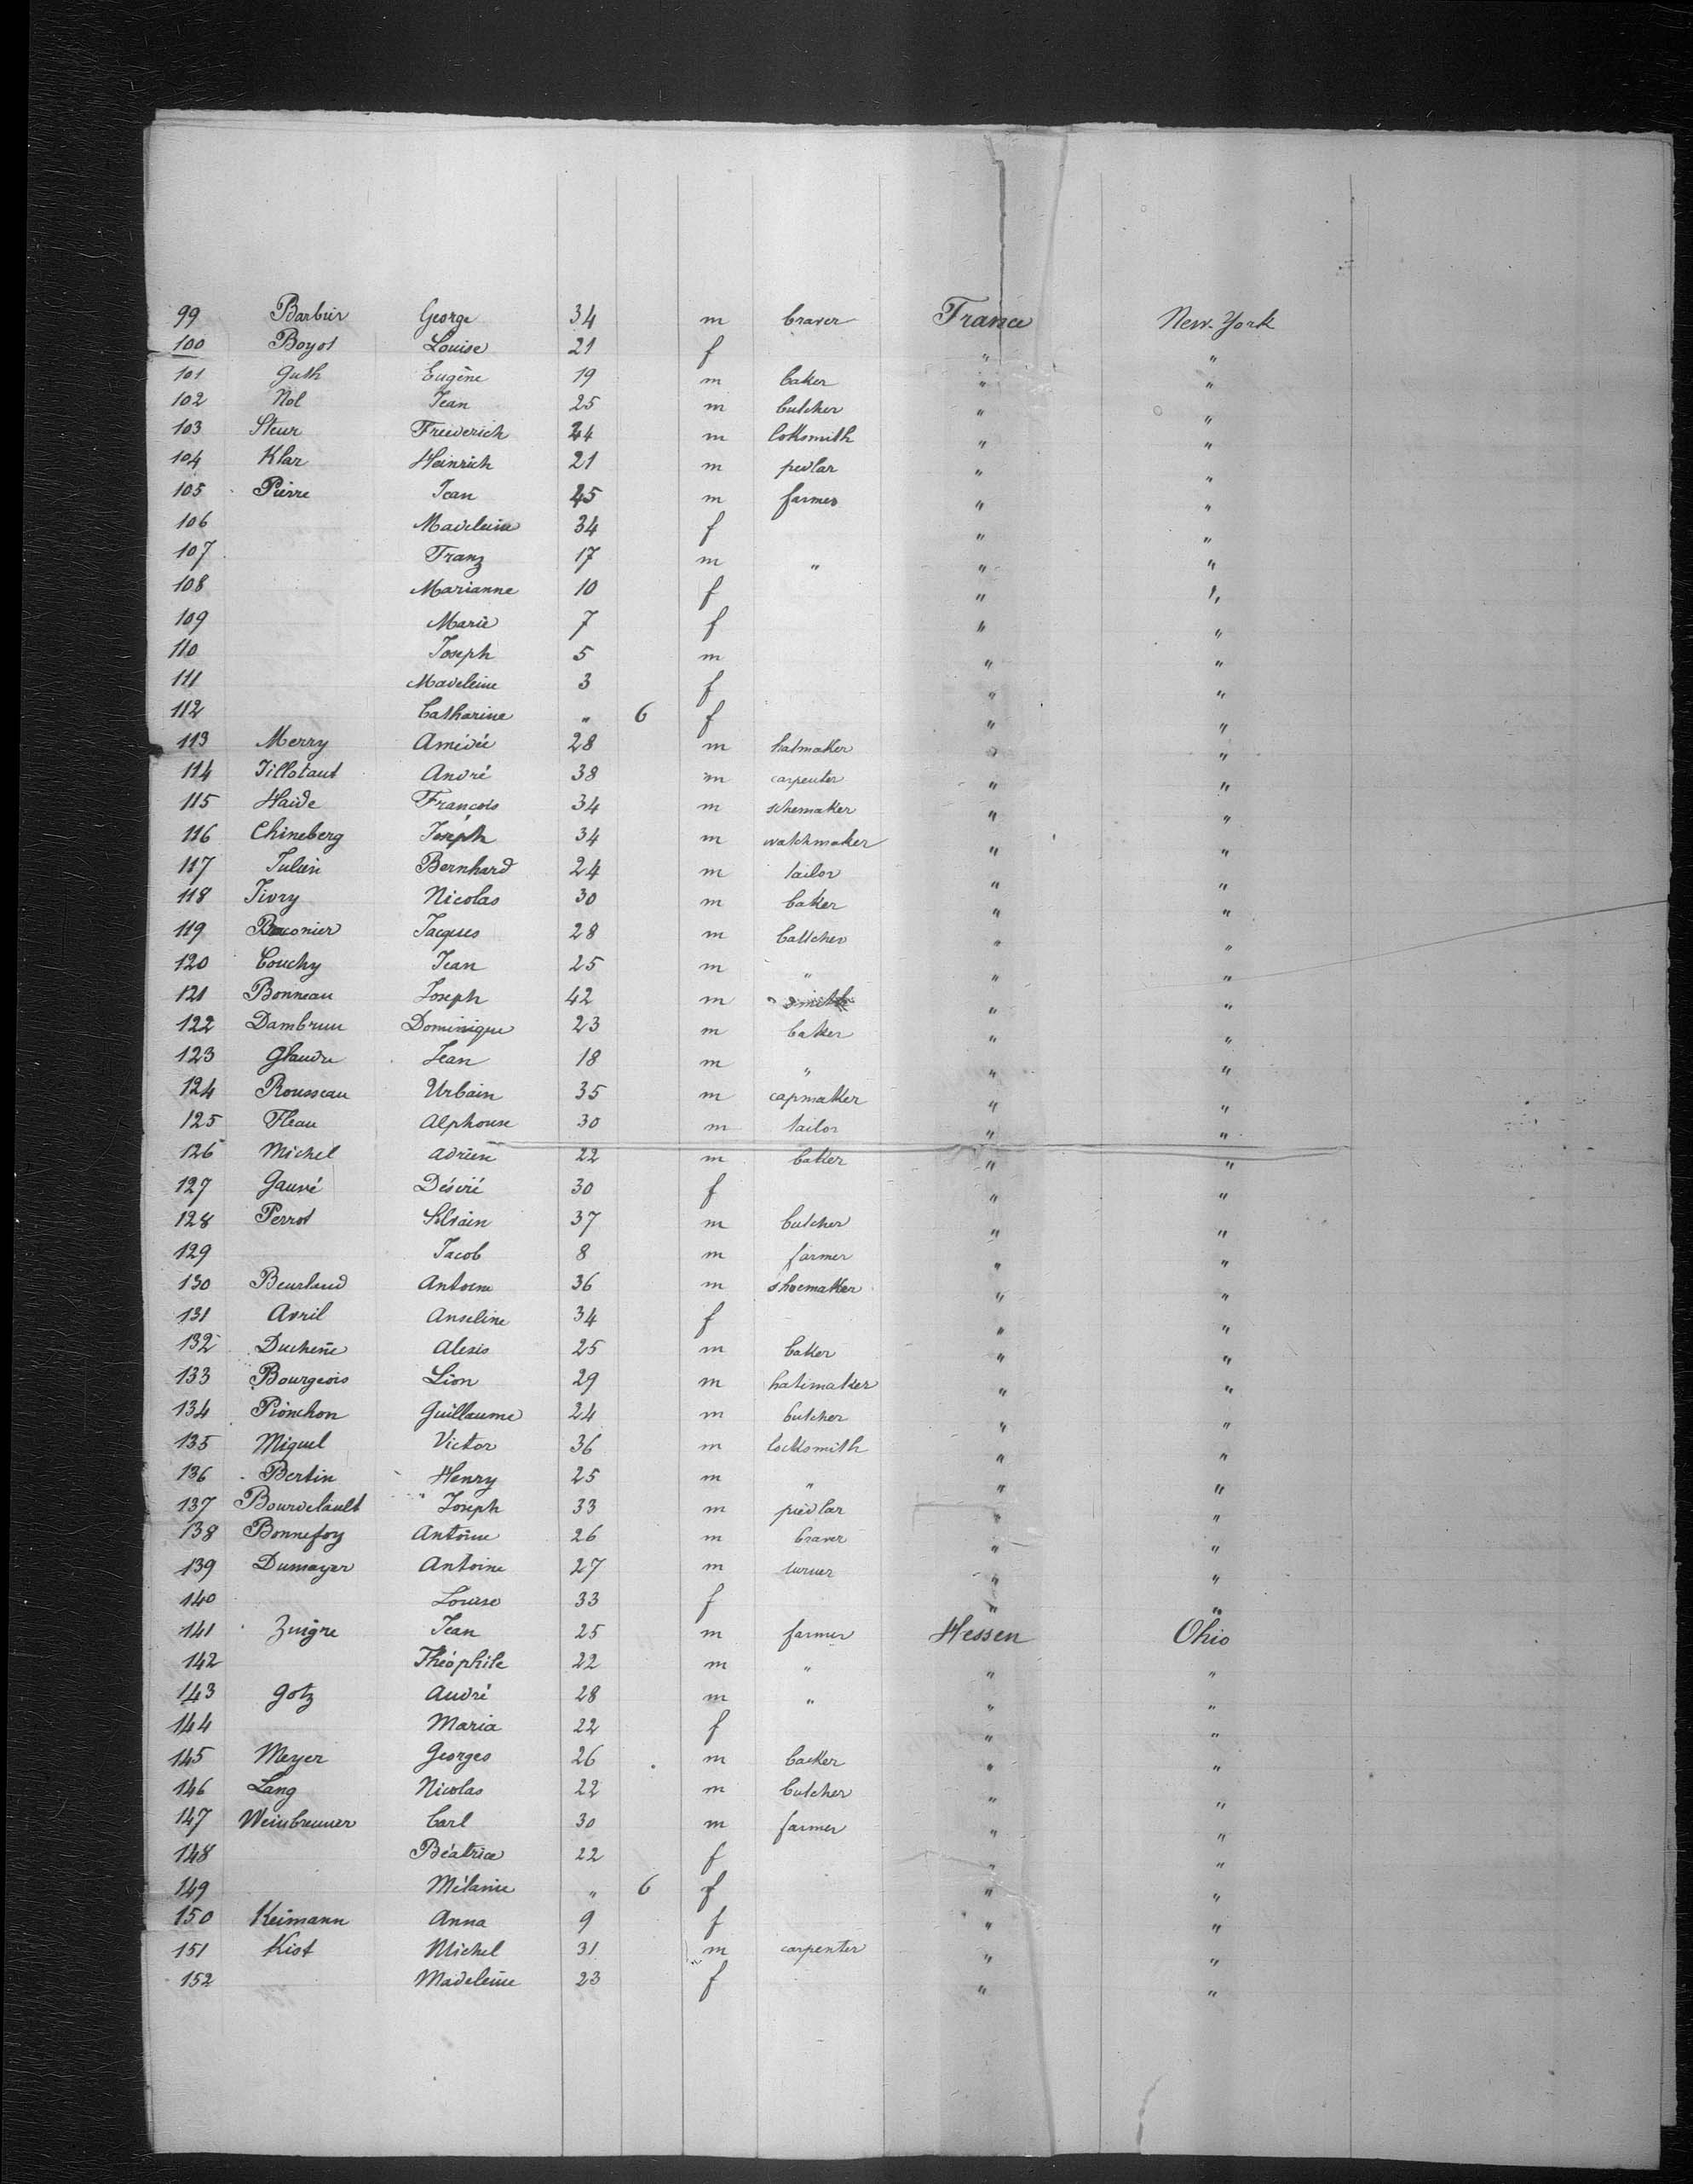 99 Barbier George 34 m braver France New-York
100 Boyot Louise 21 f " "
101 Guth Eugène 19 m baker " "
102 Nol Jean 25 m butcher " "
103 Steur Friederich 24 m loksmith " "
104 Klar Heinrich 21 m pedlar " "
105 Pierre Jean 45 m farmer " "
106 Madeleine 34 f " "
107 Franz 17 m " " "
108 Marianne 10 f " "
109 Marie 7 f " "
110 Joseph 5 m " "
111 Madeleine 3 f " "
112 Catharine " 6 f " "
113 Merry Amédée 28 m hatmaker " "
114 Tillotaut André 38 m carpenter " "
115 Haide François 34 m schemaker " "
116 Chineberg Joseph 34 m watchmaker " "
117 Julien Bernhard 24 m tailor " "
118 Tivry Nicolas 30 m baker " "
119 Braconier Jacques 28 m buttcher " "
120 Couchy Jean 25 m " " "
121 Bonneau Joseph 42 m smith " "
122 Dambrun Dominique 23 m baker " "
123 Glaudu Jean 18 m " " "
124 Rousseau Urbain 35 m capmaker " "
125 Fleau Alphonse 30 m tailor " "
126 Michel Adrien 22 m baker " "
127 Gauvé Désiré 30 f " "
128 Perrot 37 m butcher " "
129 Jacob 8 m farmer " "
130 Beurlaud Antoine 36 m shoemaker " "
131 Avril Anseline 34 f " "
132 Duchène Alexis 25 m baker " "
133 Bourgeois Léon 29 m hatmaker " "
134 Pionchon Guillaume 24 m butcher " "
135 Miquel Victor 36 m locksmith " "
136 Bertin Henry 25 m " " "
137 Bourdelault Joseph 33 m piedlar " "
138 Bonnefoy Antoine 26 m braver " "
139 Dumayer Antoine 27 m turner " "
140 Louise 33 f " "
141 Zuigre Jean 25 m farmer Hessen Ohio
142 Théophile 22 m " " "
143 Gotz André 28 m " " "
144 Maria 22 f " "
145 Meyer Georges 26 m backer " "
146 Lang Nicolas 22 m butcher " "
147 Weinbrenner Carl 30 m farmer " "
148 Béatrice 22 f " "
149 Mélanie " 6 f " "
150 Keimann Anna 9 f " "
151 Kist Michel 31 m carpenter " "
152 Madeleine 23 f " "